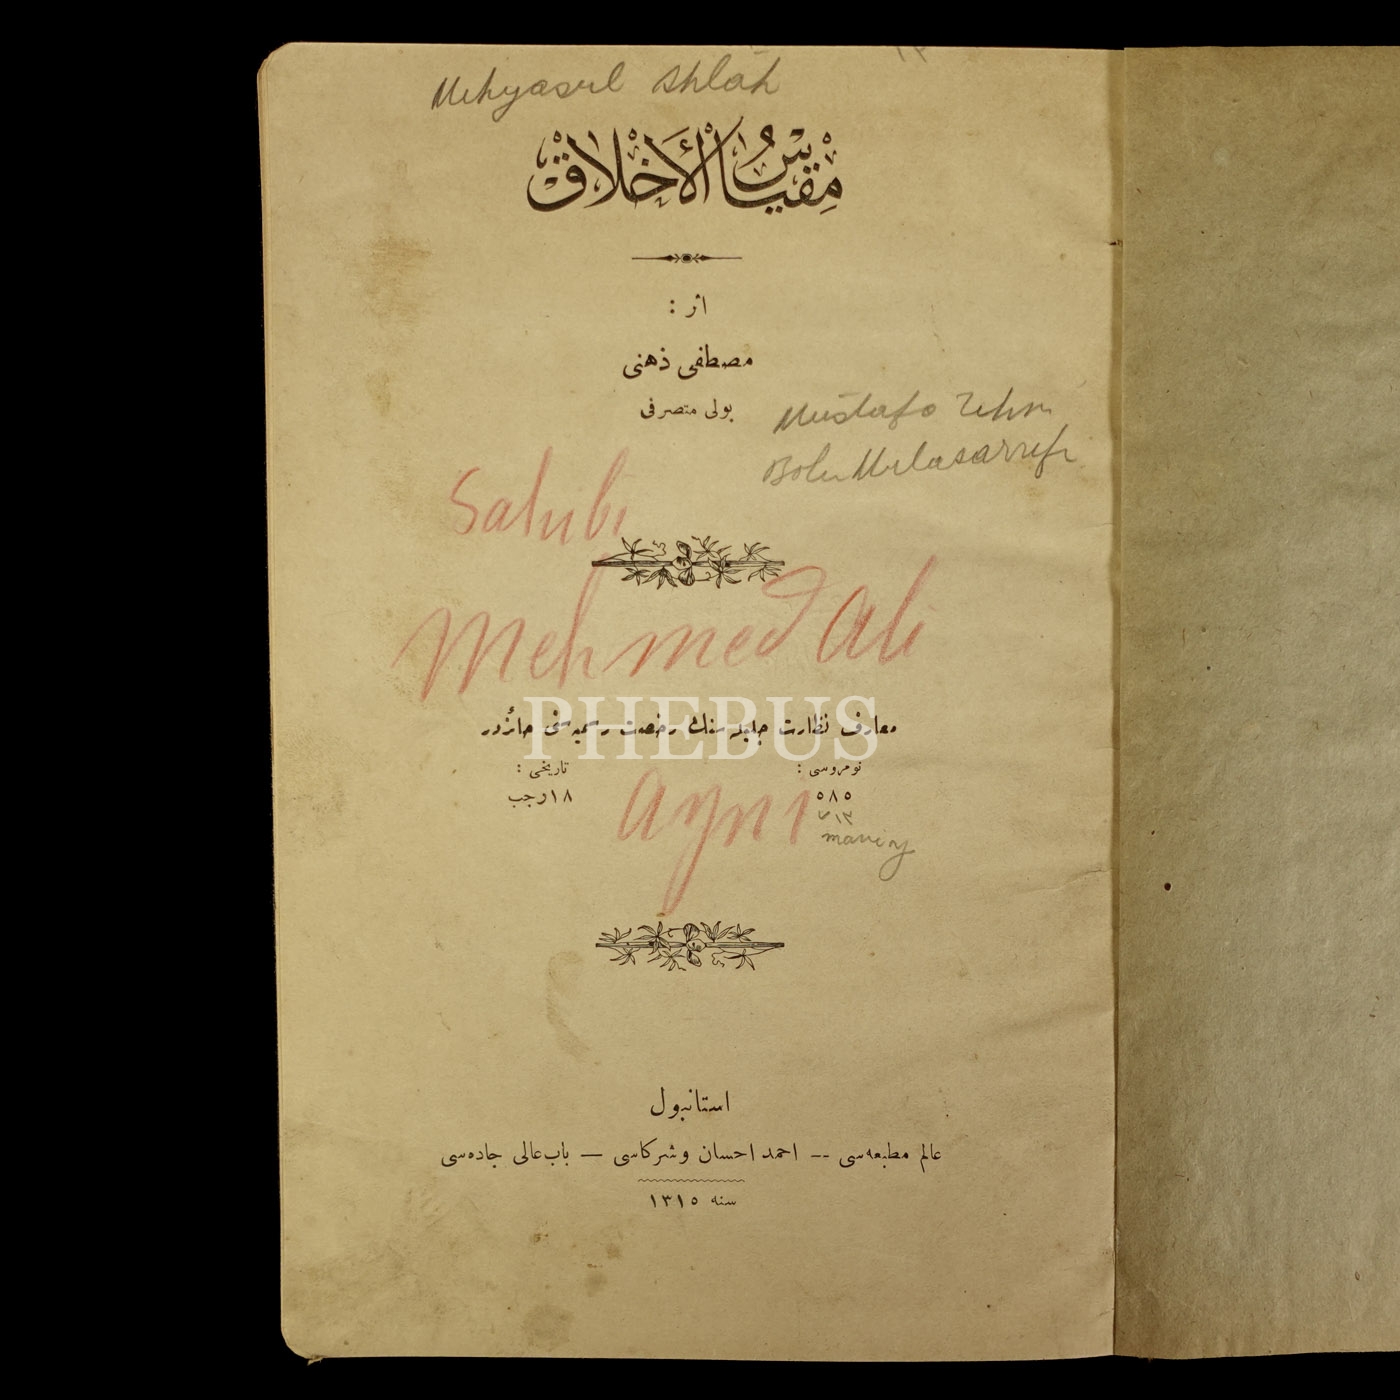 Mikyasül Ahlâk
مِقْيَاسُ الْأَخْلَاقْ
اثر :
مصطفى ذهنى
بولى متصرفى
Mustafa Zihni
Bolu Mutasarrıfı
Sahibi
Mehmed Ali
PHEBUS
معارف نظارت جليله سنك رخصت رسميه سنى حائزدر
نومروسى : تاريخى :
٥٨٥ ١٨ رجب
Ayni
استانبول
عالم مطبعه سى -- احمد احسان وشركاسى — باب عالى جاده سى
سنه ١٣١٥